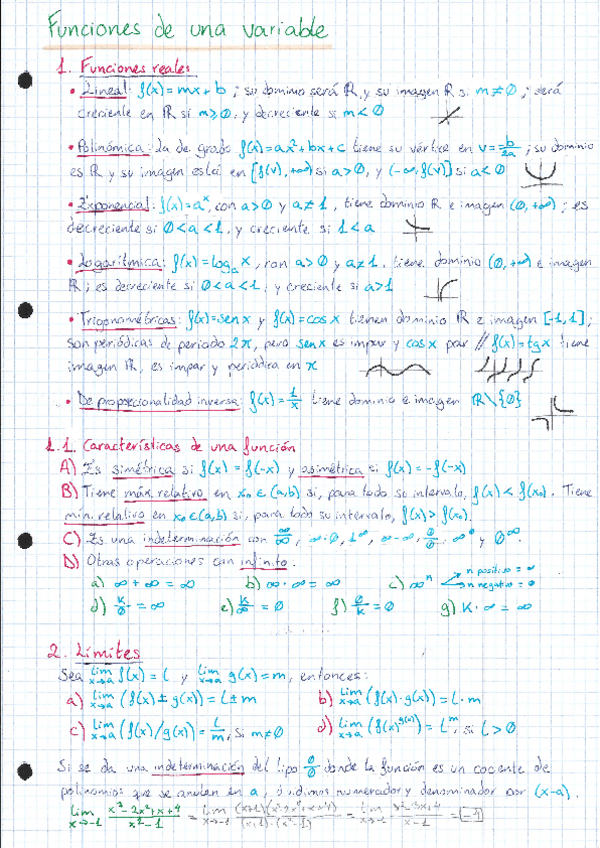 Funciones de una variable
1. Funciones reales
• Lineal: f(x)=mx+b; su dominio será ℝ y su imagen ℝ si m≠0; será
creciente en ℝ si m>0, y decreciente si m<0
• Polinómica: 2a de grado f(x)=ax²+bx+c tiene su vértice en v=-b/2a; su dominio
es ℝ y su imagen está en [f(v),+∞) si a>0, y (-∞,f(v)] si a<0
• Exponencial: f(x)=aˣ, con a>0 y a≠1, tiene dominio ℝ e imagen (0,+∞); es
decreciente si 0<a<1, y creciente si 1<a
• Logarítmica: f(x)=logₐx, con a>0 y a≠1, tiene dominio (0,+∞) e imagen
ℝ; es decreciente si 0<a<1, y creciente si a>1
• Trigonométricas: f(x)=sen x y f(x)=cos x tienen dominio ℝ e imagen [-1,1];
son periódicas de periodo 2π, pero sen x es impar y cos x par // f(x)=tg x tiene
imagen ℝ, es impar y periódica en π
• De proporcionalidad inversa: f(x)=1/x tiene dominio e imagen ℝ\{0}
1.1. Características de una función
A) Es simétrica si f(x)=f(-x) y asimétrica si f(x)=-f(-x)
B) Tiene máx. relativo en x₀∈(a,b) si, para todo su intervalo, f(x)<f(x₀). Tiene
mín. relativo en x₀∈(a,b) si, para todo su intervalo, f(x)>f(x₀).
C) Es una indeterminación con ∞/∞, ∞·0, 1^∞, ∞-∞, 0/0, ∞⁰ y 0^∞.
D) Otras operaciones con infinito.
a) ∞+∞=∞ b) ∞·∞=∞ c) ∞ⁿ n positivo=∞
n negativo=0
d) K/0=∞ e) K/∞=0 f) 0/K=0 g) K·∞=∞
2. Límites
Sea lim x→a f(x)=l y lim x→a g(x)=m, entonces:
a) lim x→a (f(x)±g(x))=l±m b) lim x→a (f(x)·g(x))=l·m
c) lim x→a (f(x)/g(x))=l/m, si m≠0 d) lim x→a (f(x)^g(x))=l^m, si l>0
Si se da una indeterminación del tipo 0/0 donde la función es un cociente de
polinomios que se anulan en a, dividimos numerador y denominador por (x-a).
lim x→-1